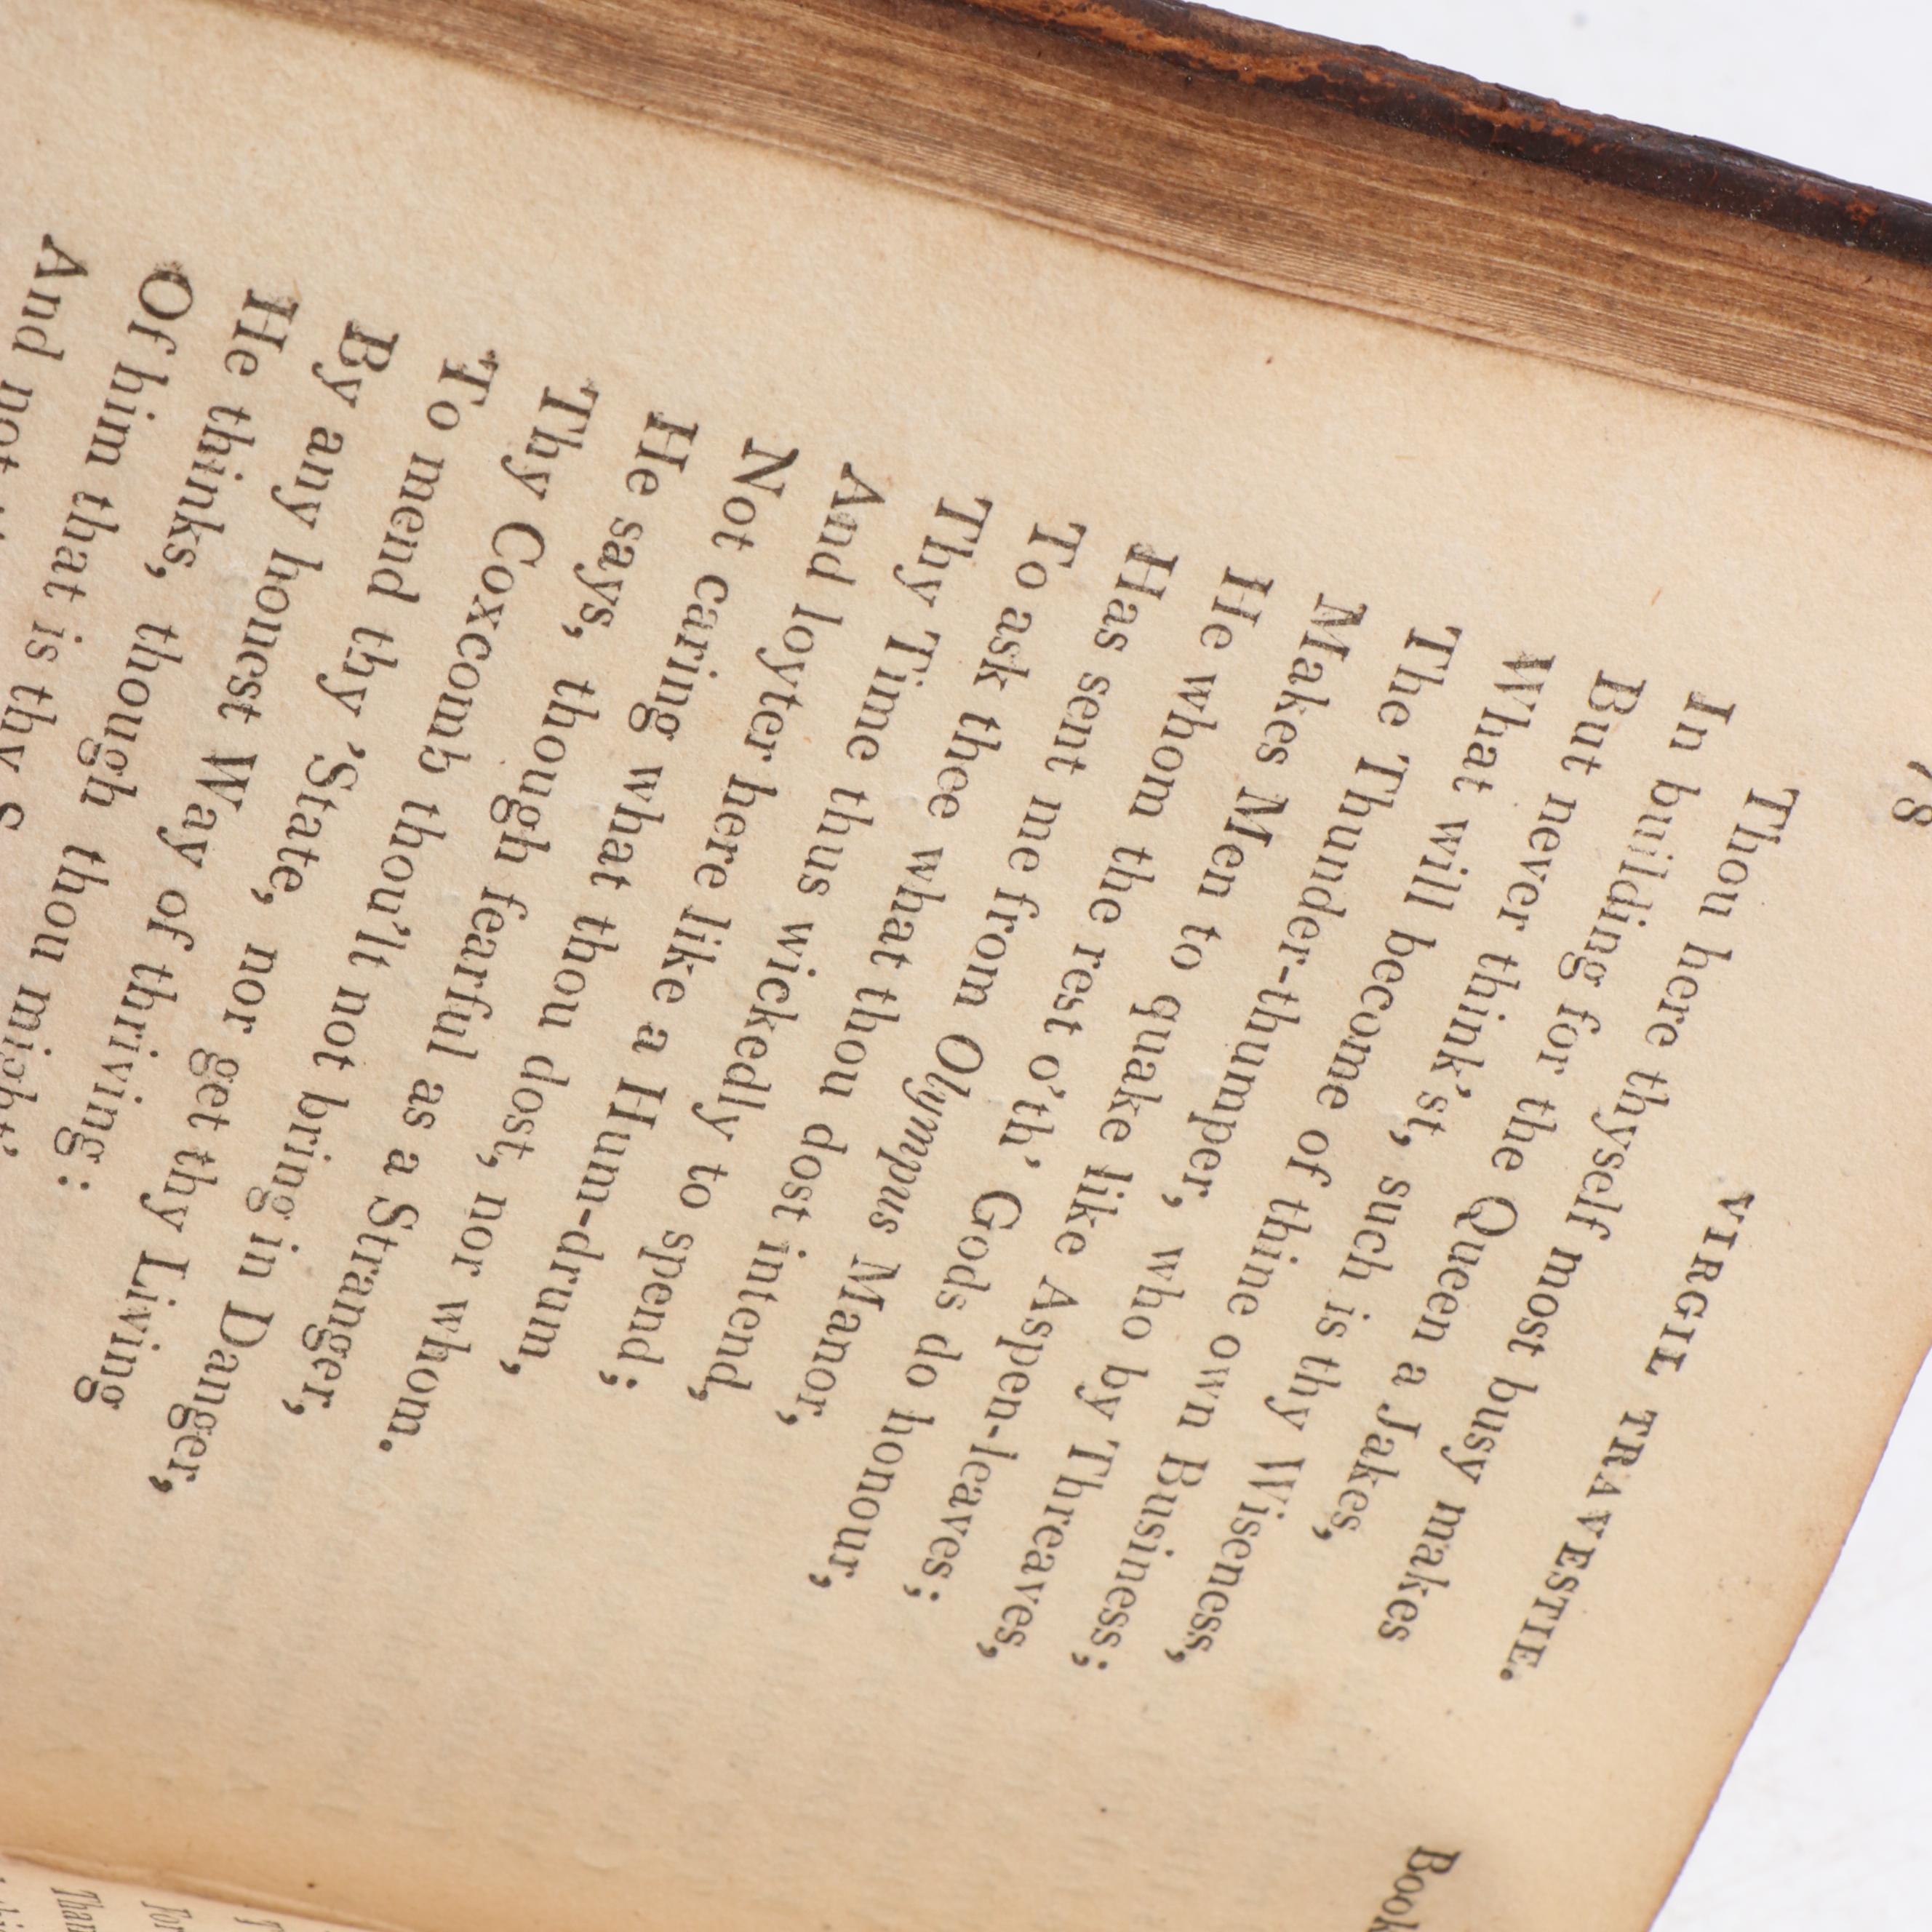 78 VIRGIL TRAVESTIE. Book
Thou here thyself most busy makes
In building for the Queen a Jakes,
But never think'st, such is thy Wiseness,
What will become of thine own Business;
The Thunder-thumper, who by Threaves,
Makes Men to quake like Aspen-leaves;
He whom the rest o'th' Gods do honour,
Has sent me from Olympus Manor,
To ask thee what thou dost intend,
Thy Time thus wickedly to spend;
And loyter here like a Hum-drum,
Not caring what thou dost, nor whom.
He says, though fearful as a Stranger,
Thy Coxcomb thou'lt not bring in Danger,
To mend thy 'State, nor get thy Living
By any honest Way of thriving:
He thinks, though thou might'
Of him that is thy S
And not
Than
For